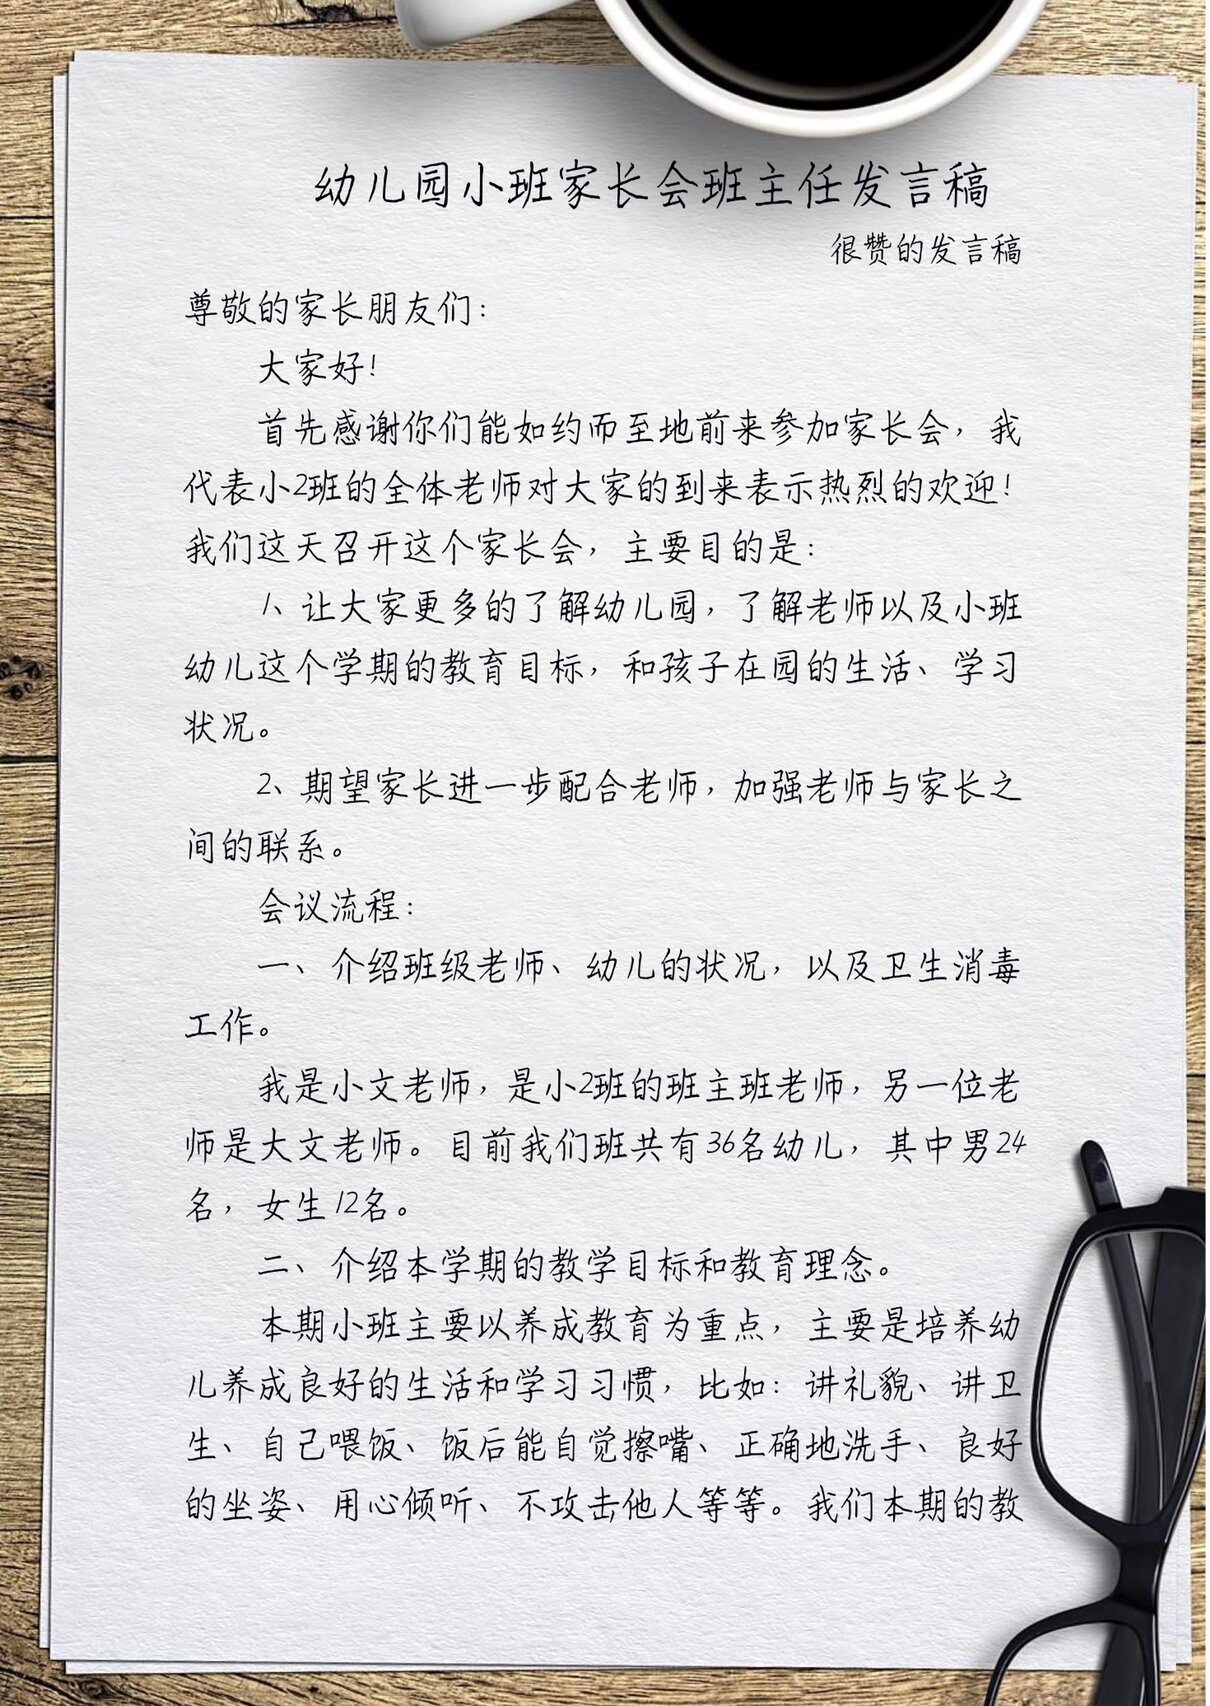 幼儿园小班家长会班主任发言稿
很赞的发言稿
尊敬的家长朋友们：
大家好！
首先感谢你们能如约而至地前来参加家长会，我
代表小2班的全体老师对大家的到来表示热烈的欢迎！
我们这天召开这个家长会，主要目的是：
1、让大家更多的了解幼儿园，了解老师以及小班
幼儿这个学期的教育目标，和孩子在园的生活、学习
状况。
2、期望家长进一步配合老师，加强老师与家长之
间的联系。
会议流程：
一、介绍班级老师、幼儿的状况，以及卫生消毒
工作。
我是小文老师，是小2班的班主班老师，另一位老
师是大文老师。目前我们班共有36名幼儿，其中男24
名，女生12名。
二、介绍本学期的教学目标和教育理念。
本期小班主要以养成教育为重点，主要是培养幼
儿养成良好的生活和学习习惯，比如：讲礼貌、讲卫
生、自己喂饭、饭后能自觉擦嘴、正确地洗手、良好
的坐姿、用心倾听、不攻击他人等等。我们本期的教